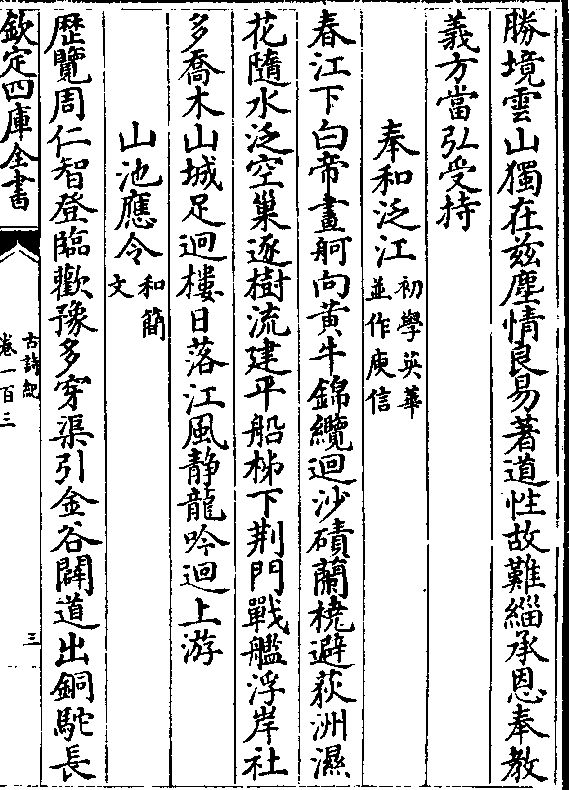 勝境雲山獨在茲塵情良易著道性故難緇承恩奉教
義方當弘受持
奉和泛江初學英華
並作庾信
春江下白帝畫舸向黃牛錦纜迴沙磧蘭橈避荻洲濕
花隨水泛空巢逐樹流建平船柹下荆門戰艦浮岸社
多喬木山城足迴樓日落江風静龍吟迴上游
山池應令和簡
文
歷覽周仁智登臨歡豫多穿渠引金谷闢道出銅駝長
欽定四庫全書
古詩紀
卷一百三
三